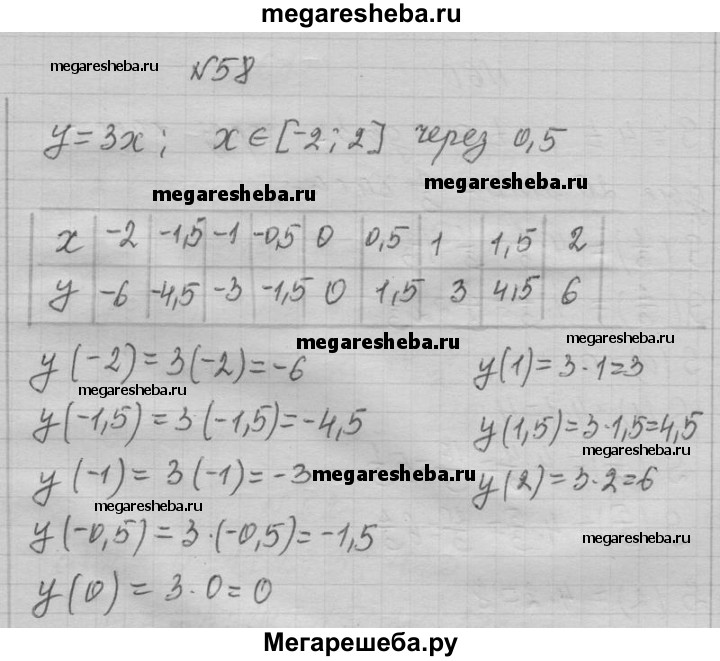 megaresheba.ru
megaresheba.ru
№58
y=3x; x∈[-2; 2] через 0,5
megaresheba.ru
megaresheba.ru
x -2 -1,5 -1 -0,5 0 0,5 1 1,5 2
y -6 -4,5 -3 -1,5 0 1,5 3 4,5 6
megaresheba.ru
megaresheba.ru
y(-2)=3(-2)=-6 y(1)=3·1=3
megaresheba.ru
y(-1,5)=3(-1,5)=-4,5 y(1,5)=3·1,5=4,5
megaresheba.ru
y(-1)=3(-1)=-3 megaresheba.ru y(2)=3·2=6
megaresheba.ru
y(-0,5)=3·(-0,5)=-1,5 megaresheba.ru
y(0)=3·0=0
Мегарешеба.ру